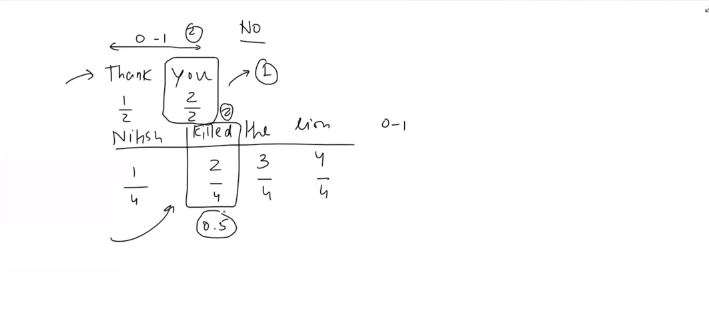 NO
0 - 1 2
Thank You 1
1/2 2/2 2
Nitish killed the lion 0-1
1/4 2/4 3/4 4/4
0.5